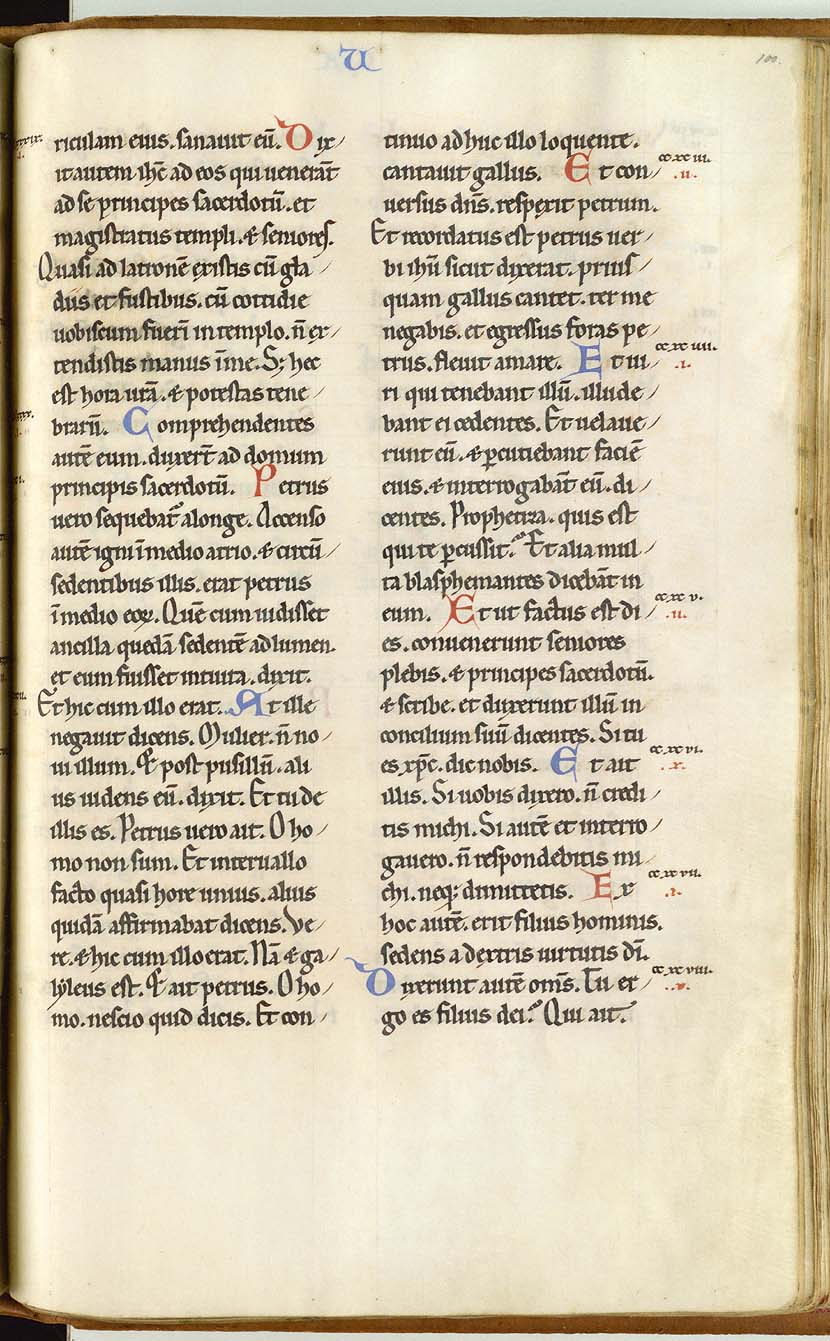 U
100.
riculam eius. sanauit eū. Dix/
it autem ihc̄ ad eos qui uenerāt
ad se principes sacerdotū. et
magistratus templi. & seniores.
Quasi ad latronē existis cū gla/
diis et fustibus. cū cottidie
uobiscum fuerī in templo. n̄ ex/
tendistis manus ī me. S; hec
est hora urā. & potestas tene/
brarū. Comprehendentes
autē eum. duxer̄t ad domum
principis sacerdotū. Petrus
uero sequebat᷑ a longe. Accenso
autē igni ī medio atrio. & circū/
sedentibus illis. erat petrus
ī medio eoꝝ. Quē cum uidisset
ancilla quedā sedentē ad lumen.
et eum fuisset intuita. dixit.
Et hic cum illo erat. At ille
negauit dicens. Mulier. n̄ no/
ui illum. Et post pusillū. ali
us uidens eū. dixit. Et tu de
illis es. Petrus uero ait. O ho/
mo non sum. Et interuallo
facto quasi hore unius. alius
quidā affirmabat dicens. Ve/
re. & hic cum illo erat. Nā & ga/
lyleus est. Et ait petrus. O ho/
mo. nescio quid dicis. Et con/
tinuo adhuc illo loquente.
cantauit gallus. Et con/ cc xc iii. .ii.
uersus dn̄s. respexit petrum.
Et recordatus est petrus uer/
bi ihū sicut dixerat. prius/
quam gallus cantet. ter me
negabis. et egressus foras pe/
trus. fleuit amare. Et ui/ cc xc iiii. .i.
ri qui tenebant illū. illude/
bant ei cedentes. Et uelaue/
runt eū. & ꝑcutiebant faciē
eius. & interrogabāt eū. di/
centes. Prophetiza. quis est
qui te ꝑcussit? Et alia mul/
ta blasphemantes dicebāt in
eum. Et ut factus est di/ cc xc v. .ii.
es. conuenerunt seniores
plebis. & principes sacerdotū.
& scribe. et duxerunt illū in
concilium suū dicentes. Si tu
es xp̄c. dic nobis. Et ait cc xc vi. .x.
illis. Si uobis dixero. n̄ credi/
tis michi. Si autē et interro/
gauero. n̄ respondebitis mi/
chi. neq; dimittetis. Ex cc xc vii. .i.
hoc autē. erit filius hominis.
sedens a dextris uirtutis dī.
Dixerunt autē om̄s. Tu er/ cc xc viii. .x.
go es filius dei? Qui ait.